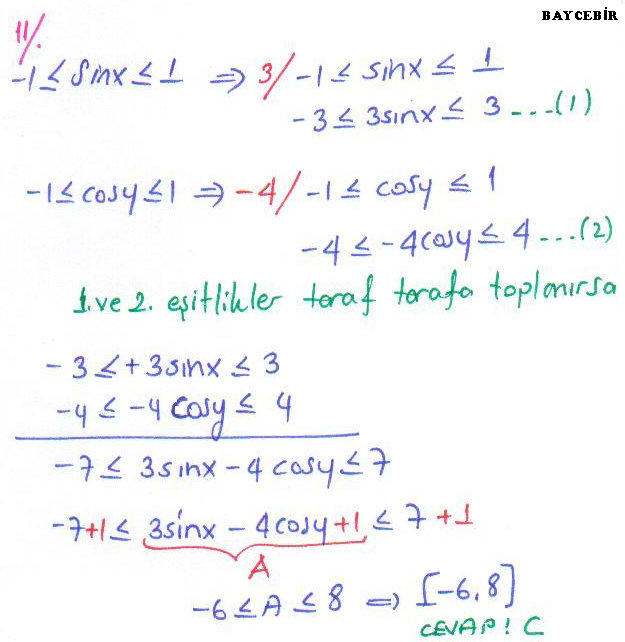 BAYCEBİR
11/.
-1 ≤ sinx ≤ 1 ⇒ 3/ -1 ≤ sinx ≤ 1
-3 ≤ 3sinx ≤ 3 ...(1)
-1 ≤ cosy ≤ 1 ⇒ -4/ -1 ≤ cosy ≤ 1
-4 ≤ -4cosy ≤ 4 ...(2)
1. ve 2. eşitlikler taraf tarafa toplanırsa
-3 ≤ +3sinx ≤ 3
-4 ≤ -4 cosy ≤ 4
-7 ≤ 3sinx - 4 cosy ≤ 7
-7+1 ≤ 3sinx - 4cosy+1 ≤ 7 +1
A
-6 ≤ A ≤ 8 ⇒ [-6,8]
CEVAP! C